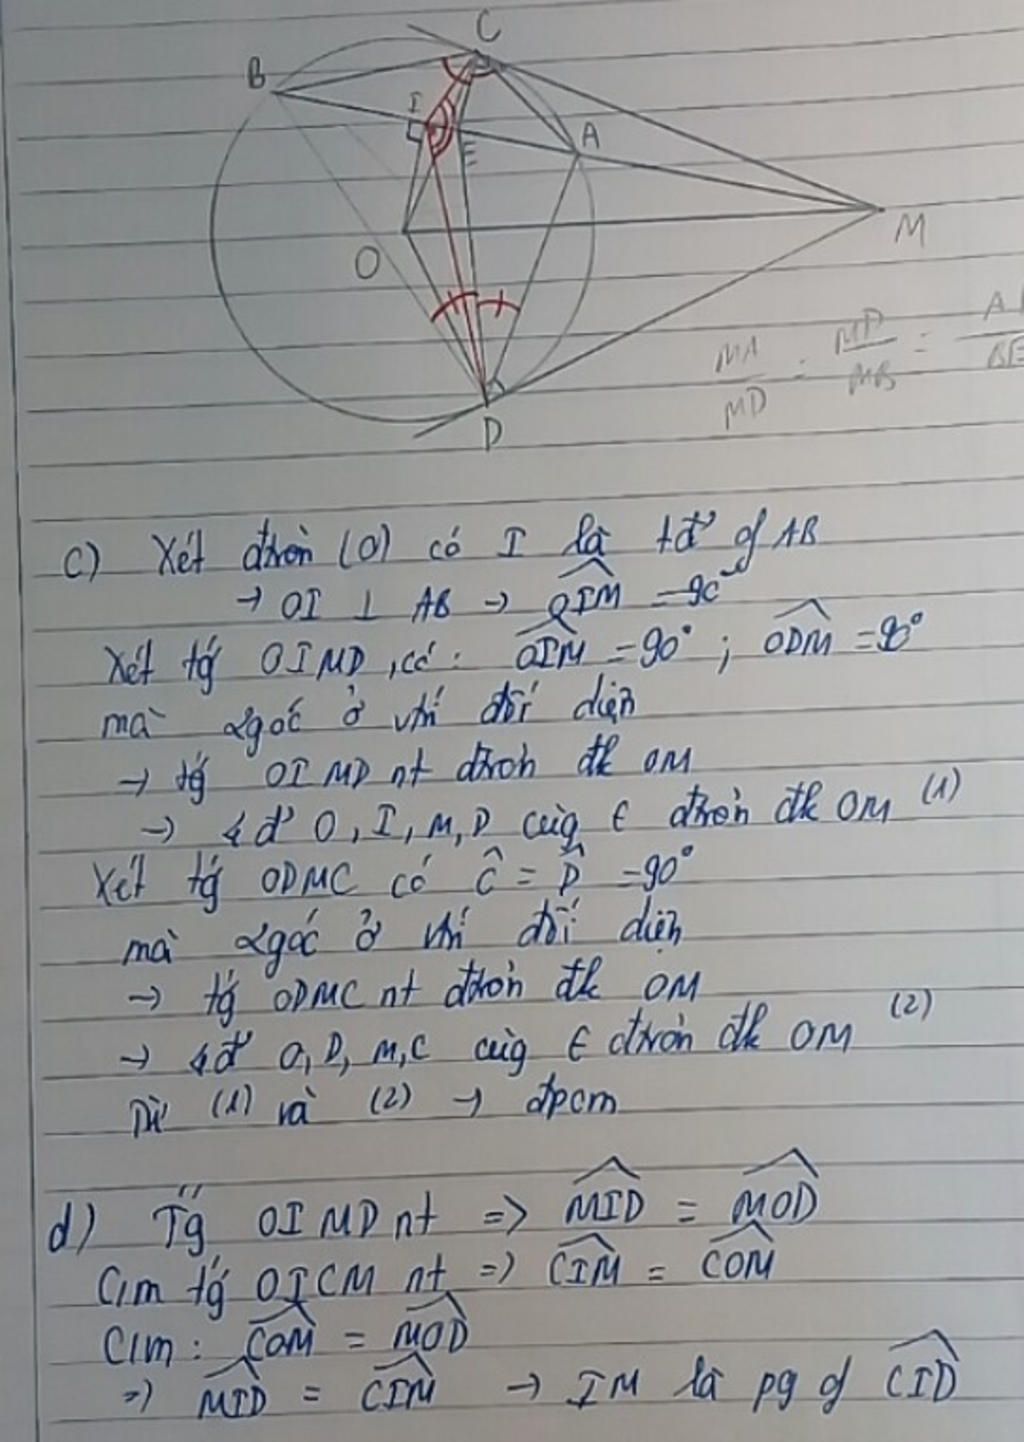 C
B
I
A
E
M
O
D
MA/MD = MD/MB = A
BE
c) Xét đtròn (O) có I là tđ' of AB
→ OI ⊥ AB → OIM = 90°
Xét tg OIMD, có: OIM = 90° ; ODM = 90°
mà 2góc ở vtrí đối diện
→ tg OIMD nt đtròn đk OM
→ 4đ' O, I, M, D cùng ∈ đtròn đk OM (1)
Xét tg ODMC có Ĉ = D̂ = 90°
mà 2góc ở vtrí đối diện
→ tg ODMC nt đtròn đk OM
→ 4đ' O, D, M, C cùng ∈ đtròn đk OM (2)
Từ (1) và (2) → đpcm
d) Tg OIMD nt => MID = MOD
C/m tg OICM nt => CIM = COM
C/m: COM = MOD
=> MID = CIM → IM là pg of CID